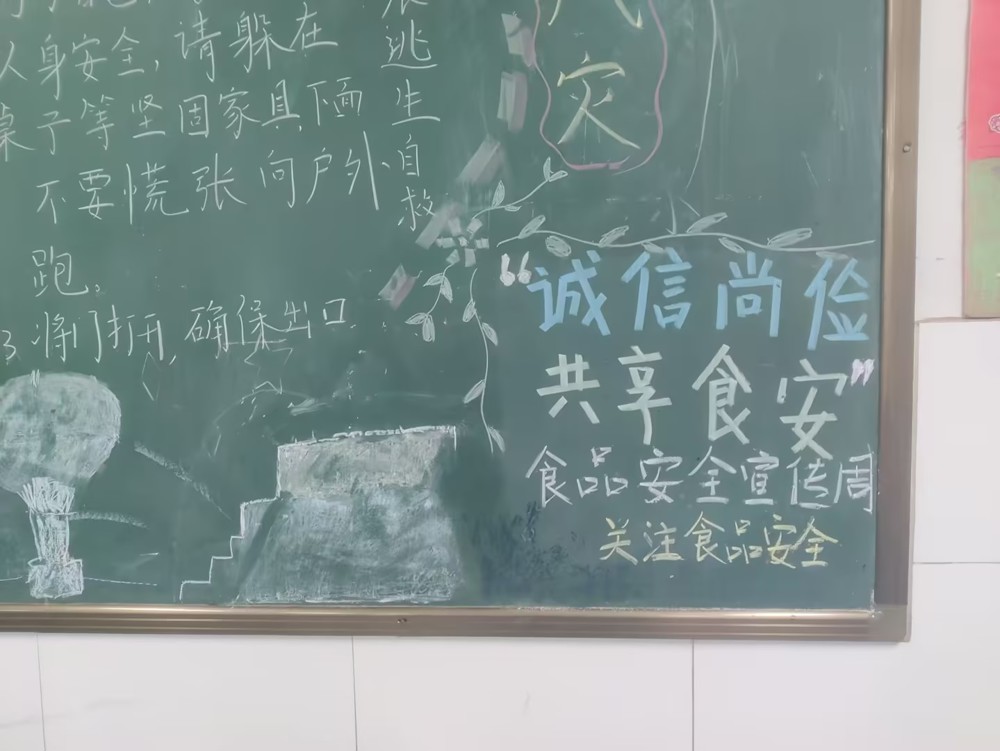 人身安全,请躲在
桌子等坚固家具下面
不要慌张向户外
跑。
将门打开,确保出口
逃生自救
灾
“诚信尚俭
共享食安”
食品安全宣传周
关注食品安全